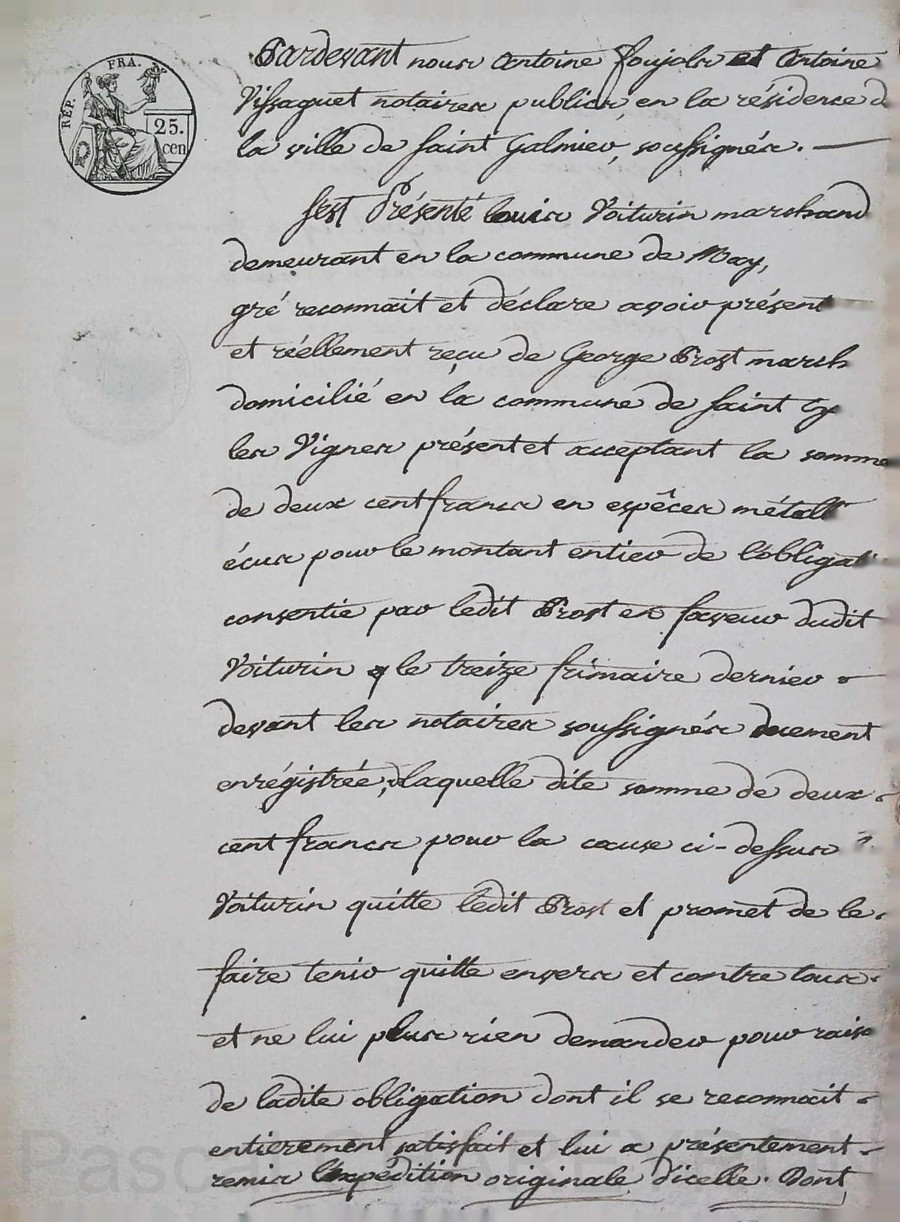 RÉP. FRA.
25.
cen
Pardevant nous Antoine foujols et Antoine
Vissaguet notaires publics en la résidence d
la ville de saint Galmier, soussignés.
s'est Présenté louis Voiturin marchand
demeurant en la commune de
gré reconnait et déclare avoir présent
et réellement reçu de George Prost march
domicilié en la commune de saint cy
les Vignes présent et acceptant la somme
de deux cent francs en espêces métall
écus pour le montant entier de l'obligat
consentie par ledit Prost en faveur dudit
Voiturin le treize frimaire dernier
devant les notaires soussignés duement
enrégistrée, laquelle dite somme de deux
cent francs pour la cause ci-dessus
Voiturin quitte ledit Prost et promet de le
faire tenir quitte envers et contre tous
et ne lui plus rien demander pour raiso
de ladite obligation dont il se reconnait
entierement satisfait et lui a présentement
remis l'expédition originale d'icelle. Dont